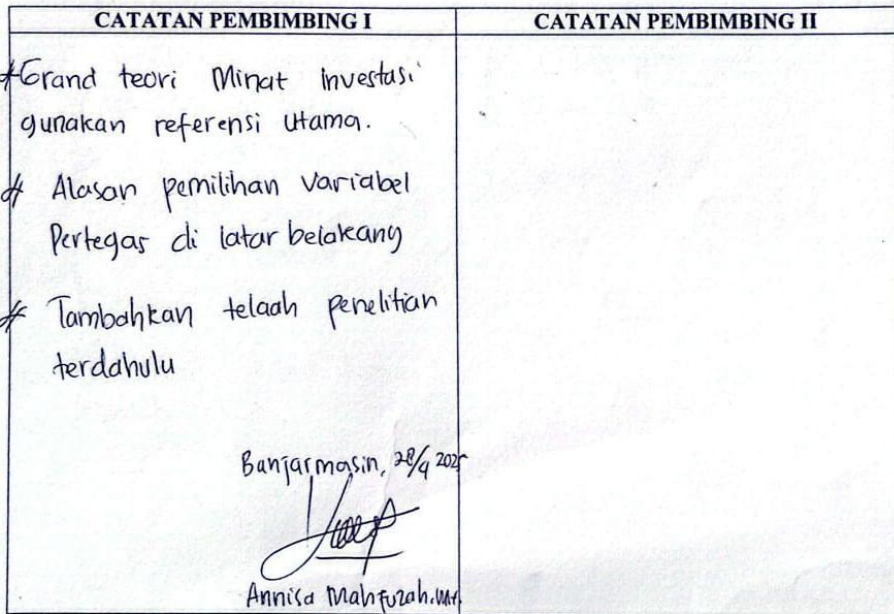 CATATAN PEMBIMBING I
CATATAN PEMBIMBING II
# Grand teori Minat Investasi
gunakan referensi utama.
# Alasan pemilihan Variabel
Pertegas di latar belakang
# Tambahkan telaah penelitian
terdahulu
Banjarmasin, 28/4 2025
Annisa Mahfuzah.